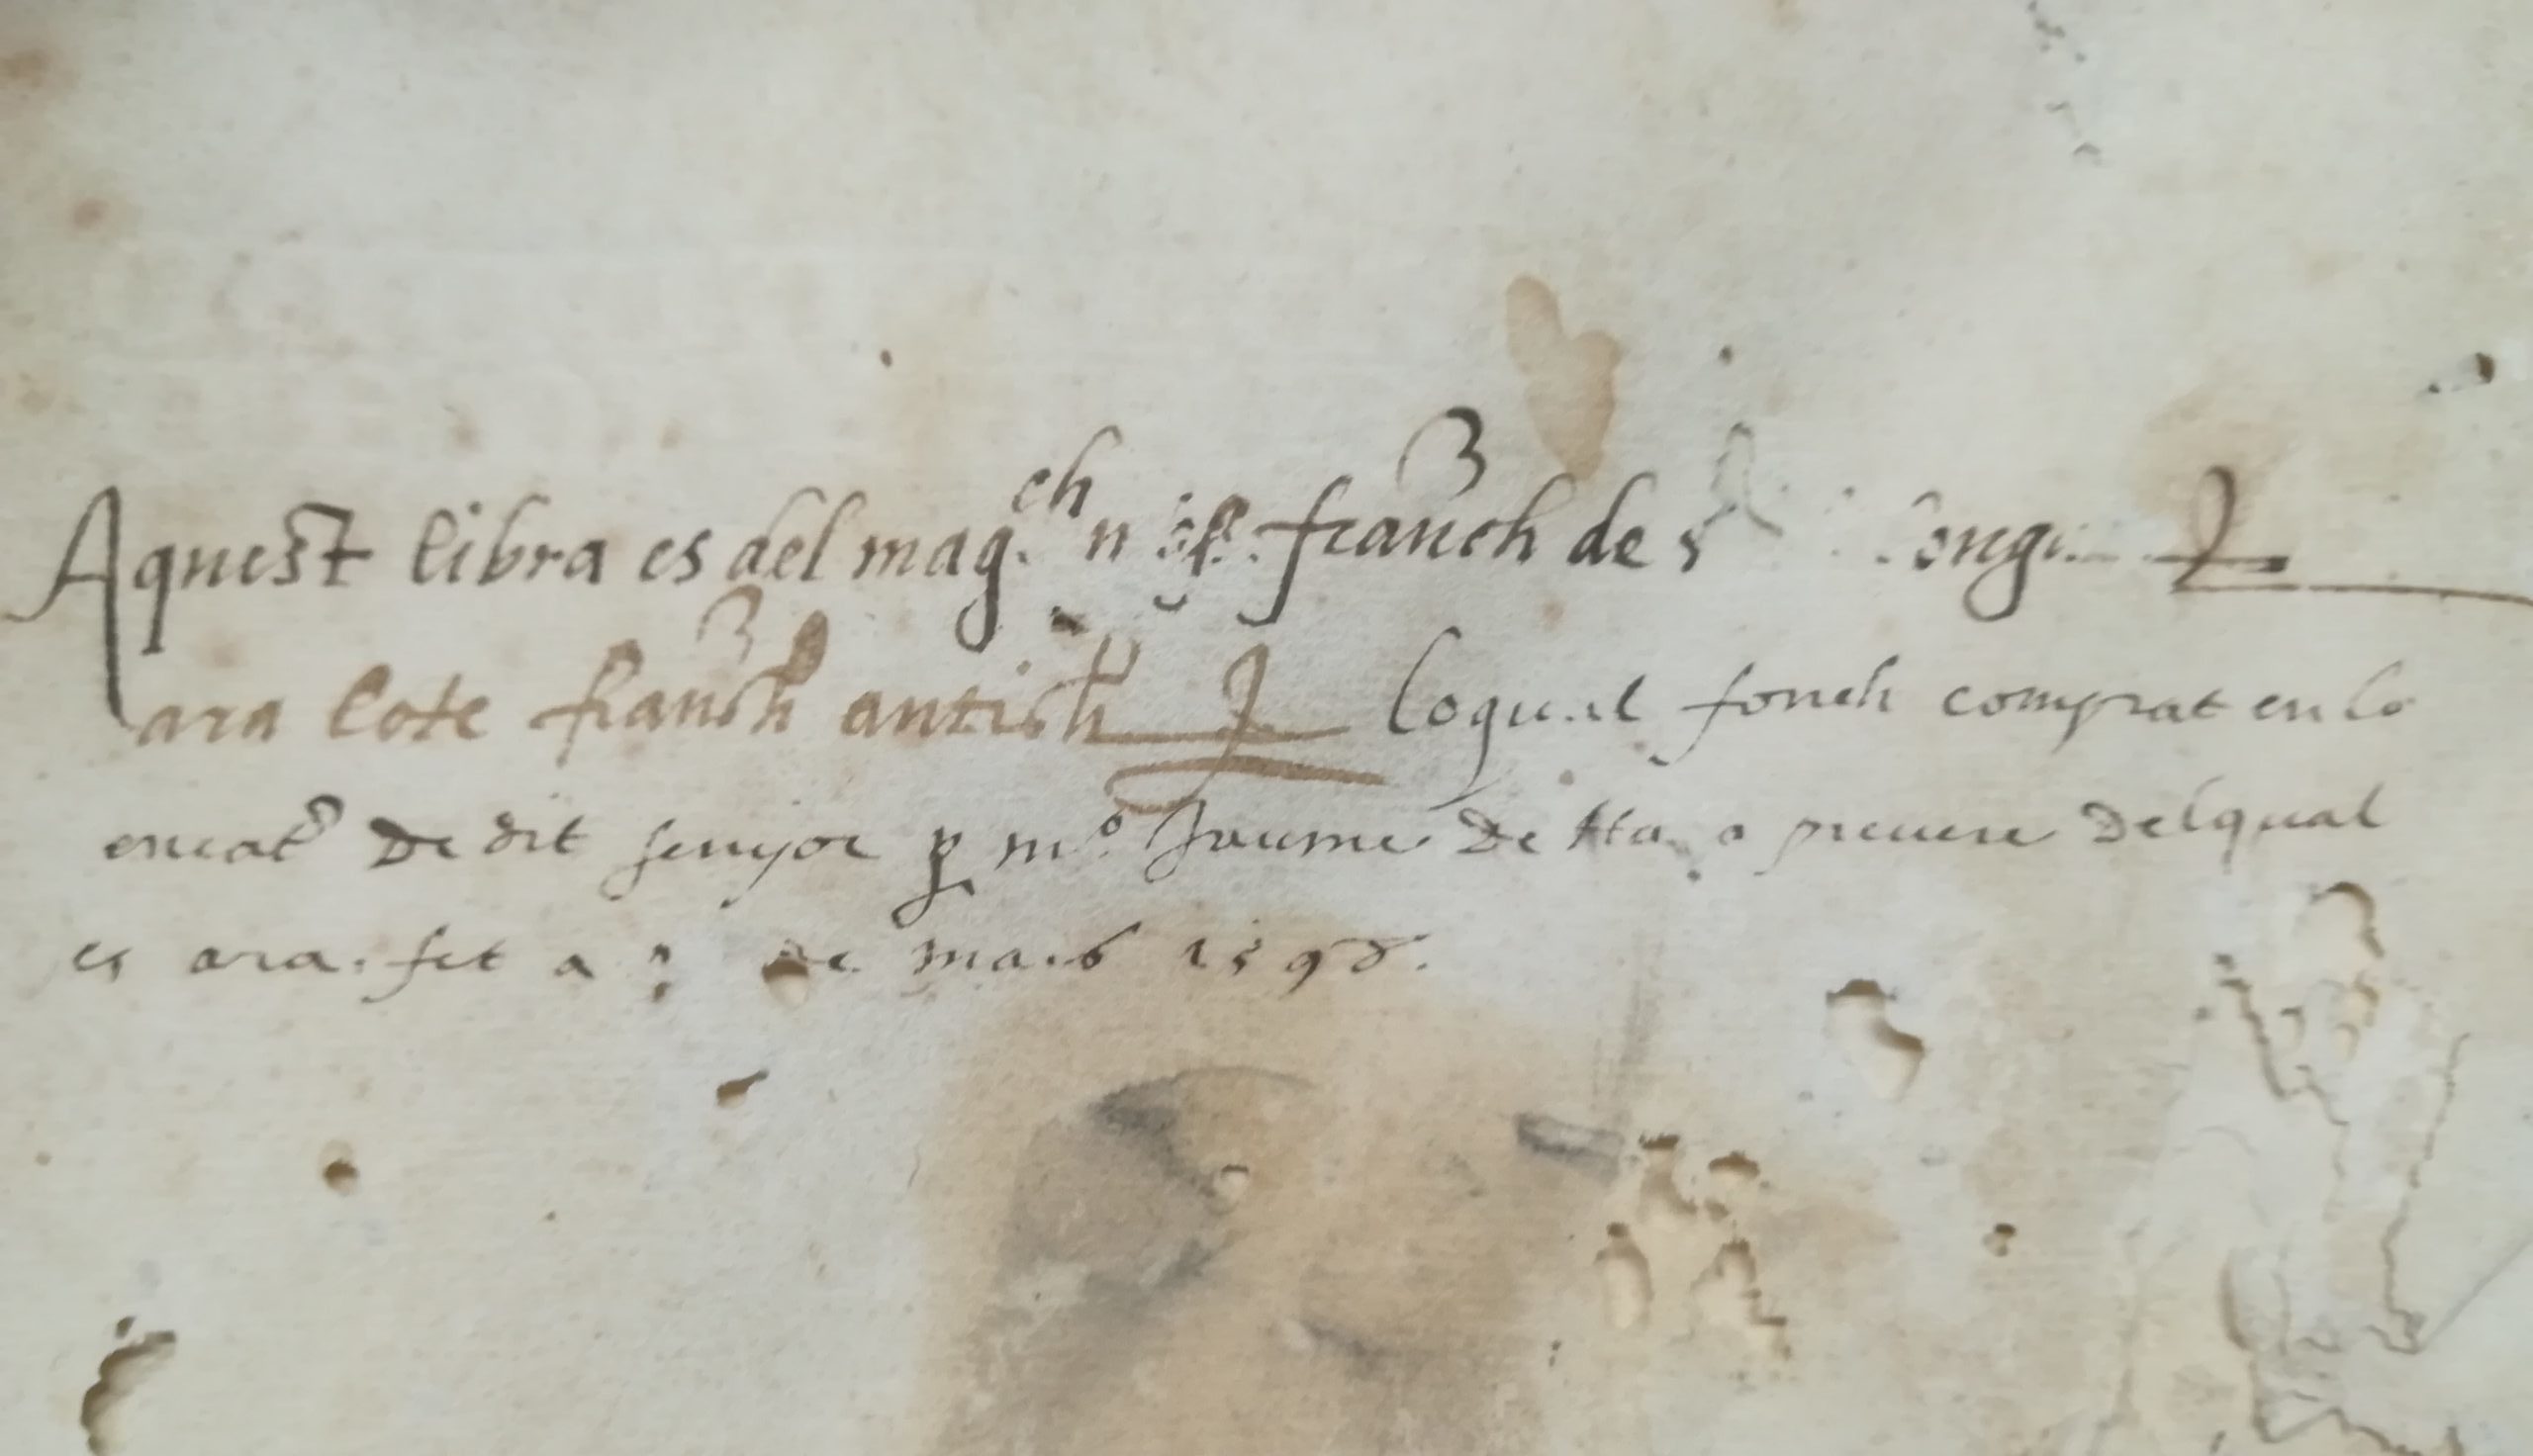 Aquest libra es del mag.ch franch de
ara lote franch antich loqual fonch comprat en lo
encat de dit senyor p mº Jaume de prevere delqual
es ara. fet a de 1598.